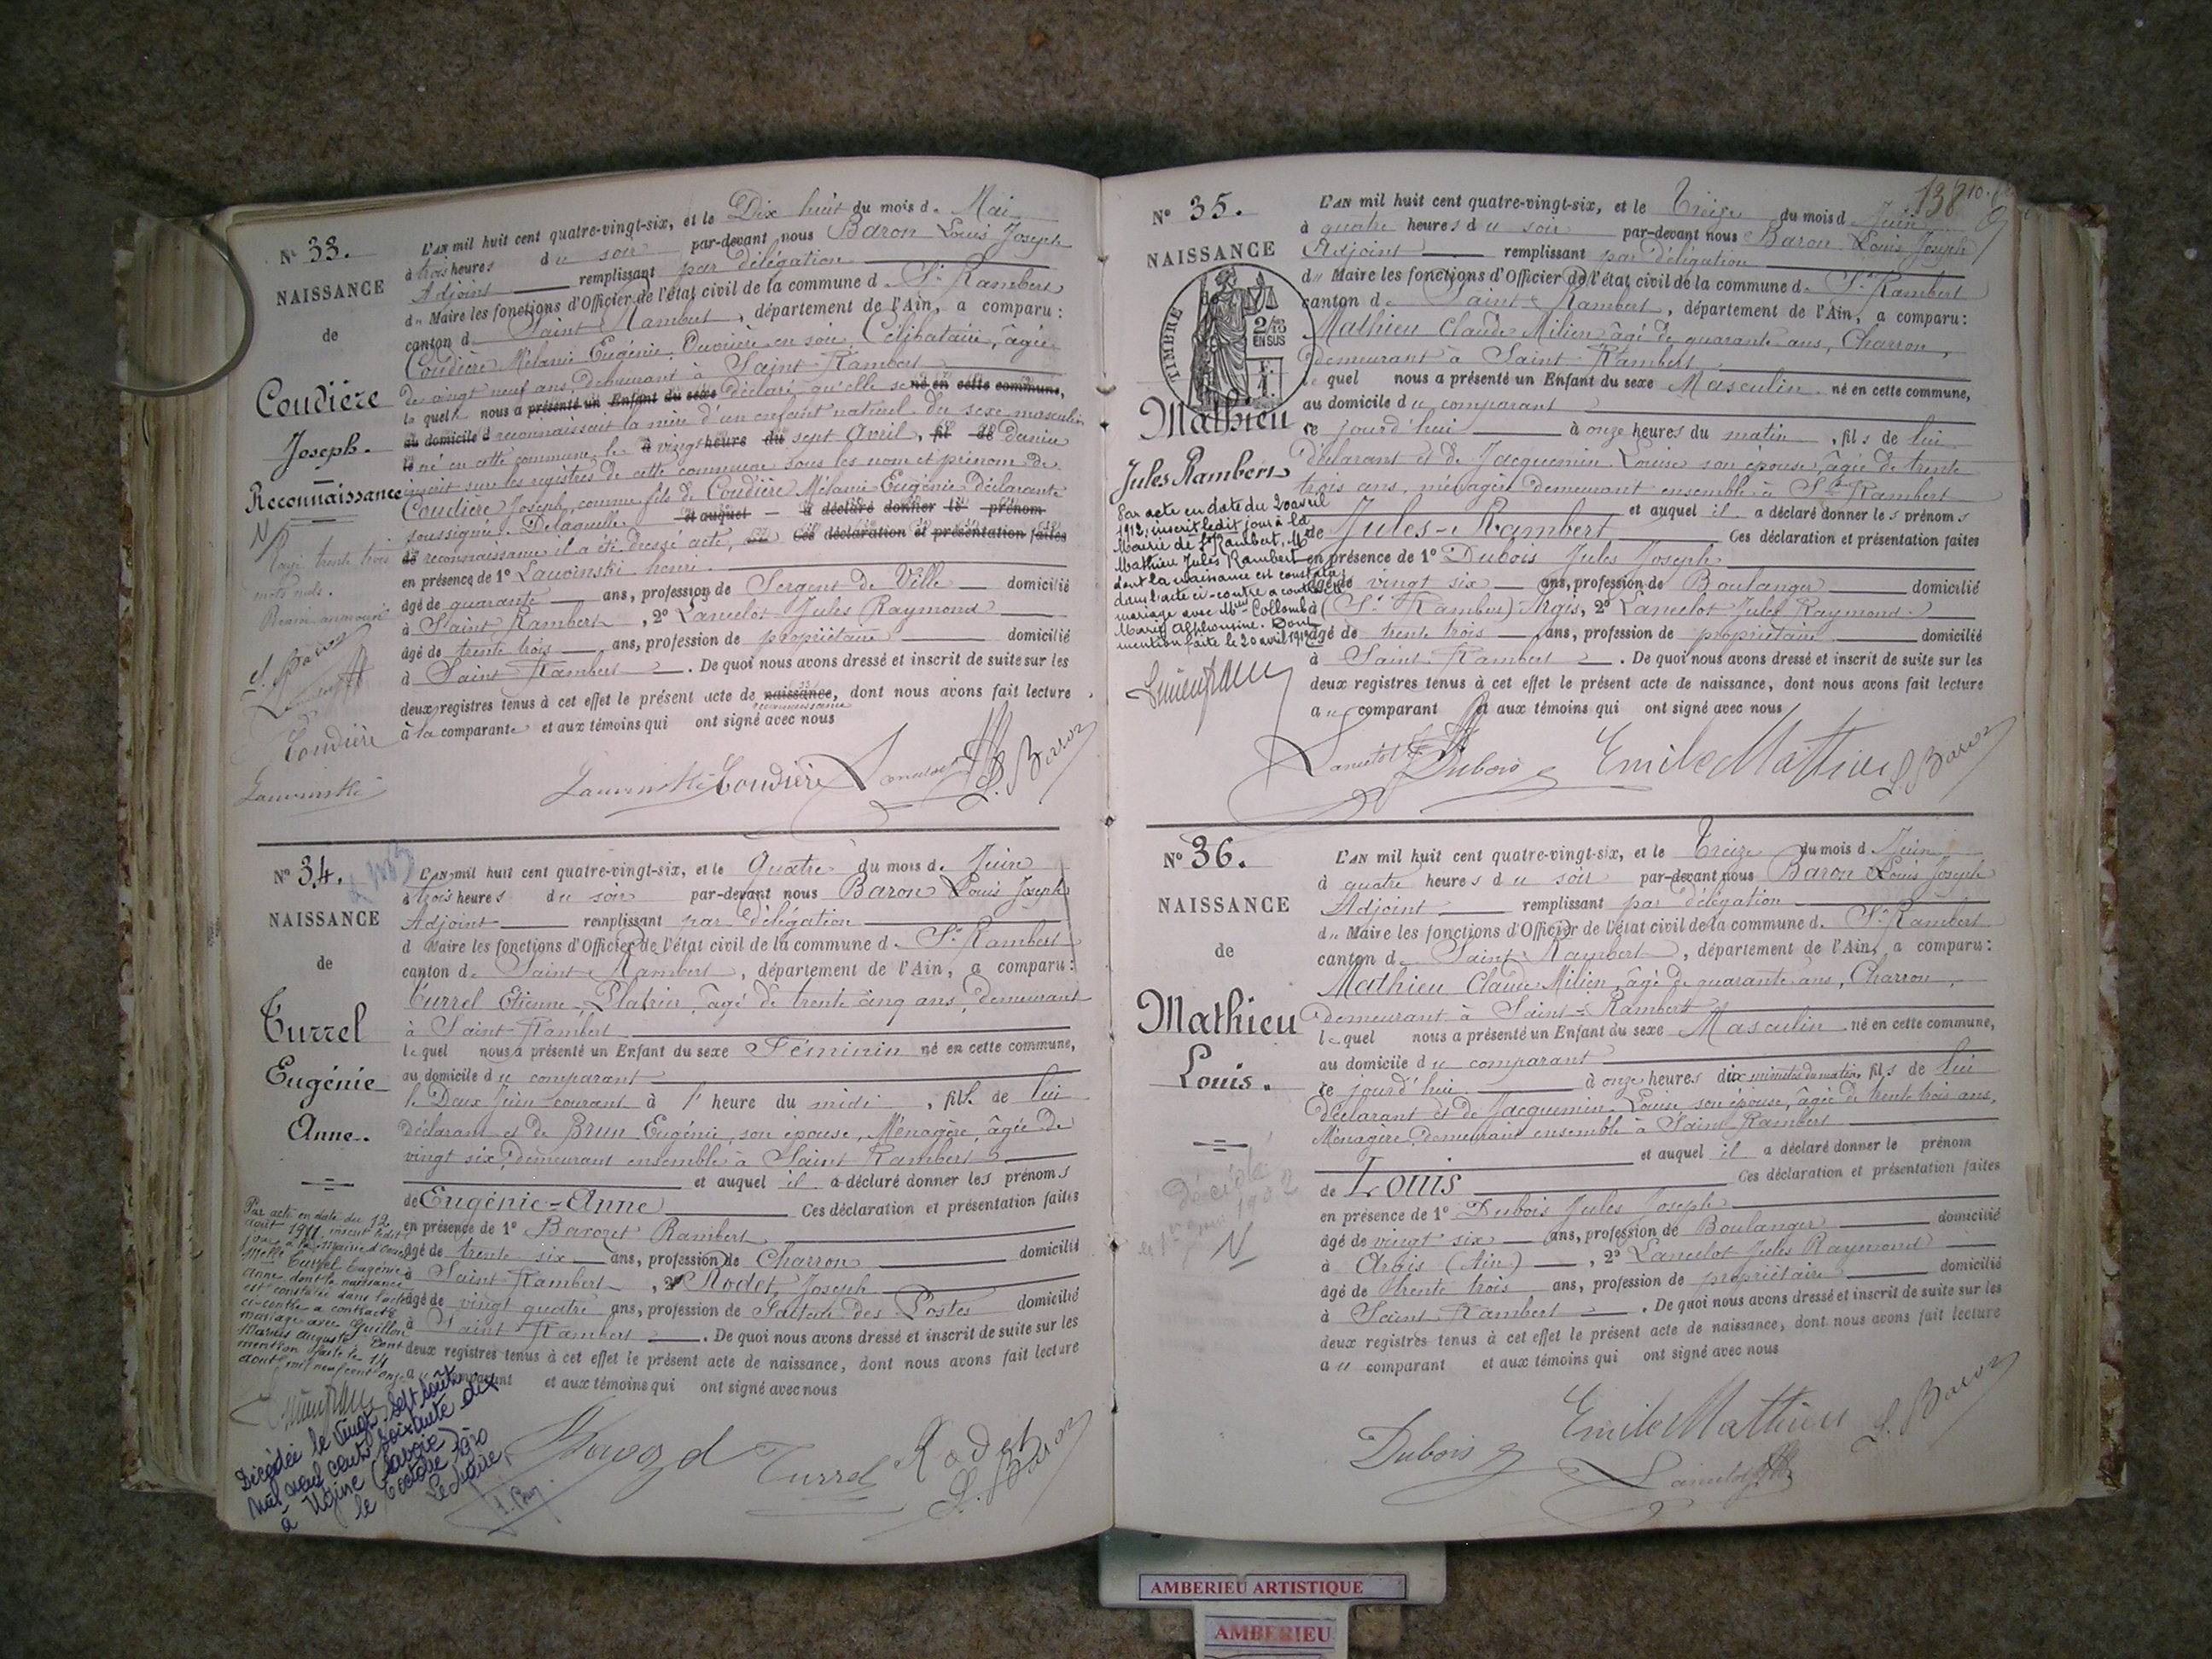 N° 33.
NAISSANCE
de
Coudière
Joseph.
Reconnaissance
Rayé trente trois
mots nuls.
L. Baron
Coudière
Lauvinski
L'AN mil huit cent quatre-vingt-six, et le Dix huit du mois de Mai
à trois heures du soir par-devant nous Baron Louis Joseph
Adjoint remplissant par délégation
du Maire les fonctions d'Officier de l'état civil de la commune de St Rambert
canton de Saint Rambert, département de l'Ain, a comparu :
Coudière Mélanie Eugénie, Ouvrière en soie, Célibataire, âgée
de vingt neuf ans demeurant à Saint Rambert
laquelle nous a présenté un Enfant du sexe déclaré qu'elle se né en cette commune,
au domicile d reconnaissait la mère d'un enfant naturel du sexe masculin
né en cette commune le à vingt heure du sept Avril, fil de dernier
inscrit sur les registres de cette commune sous les nom et prénom de
Coudière Joseph comme fils de Coudière Mélanie Eugénie déclarante
soussignée. De laquelle et auquel a déclaré donner le prénom
de reconnaissance il a été dressé acte, Ces déclaration et présentation faites
en présence de 1° Lauvinski henri
âgé de quarante ans, profession de Sergent de Ville domicilié
à Saint Rambert, 2° Lancelot Jules Raymond
âgé de trente trois ans, profession de propriétaire domicilié
à Saint Rambert. De quoi nous avons dressé et inscrit de suite sur les
deux registres tenus à cet effet le présent acte de naissance, dont nous avons fait lecture
reconnaissance
à la comparante et aux témoins qui ont signé avec nous
Lauvinski Coudière Lancelot L. Baron
N° 34.
NAISSANCE
de
Turrel
Eugénie
Anne.
L'AN mil huit cent quatre-vingt-six, et le Quatre du mois de Juin
à trois heures du soir par-devant nous Baron Louis Joseph
Adjoint remplissant par délégation
d Maire les fonctions d'Officier de l'état civil de la commune de St Rambert
canton de Saint Rambert, département de l'Ain, a comparu :
Turrel Etienne, Platrier, âgé de trente cinq ans, demeurant
à Saint Rambert
lequel nous a présenté un Enfant du sexe Féminin né en cette commune,
au domicile du comparant
le Deux Juin courant à 1 heure du midi, fille de lui
déclarant et de Brun Eugénie, son épouse, Ménagère, âgée de
vingt six, demeurant ensemble à Saint Rambert
et auquel il a déclaré donner les prénoms
de Eugénie-Anne Ces déclaration et présentation faites
en présence de 1° Baroret Rambert
âgé de trente six ans, profession de Charron domicilié
à Saint Rambert, 2° Rodet Joseph
âgé de vingt quatre ans, profession de Facteur des Postes domicilié
à Saint Rambert. De quoi nous avons dressé et inscrit de suite sur les
deux registres tenus à cet effet le présent acte de naissance, dont nous avons fait lecture
au comparant et aux témoins qui ont signé avec nous
Turrel Rodet
L. Baron
Par acte en date du 12
août 1911 inscrit ledit
jour à la mairie
Melle Turrel Eugénie
Anne dont la naissance
est constatée dans l'acte
ci-contre a contracté
mariage avec Guillon
Marius Auguste. Dont
mention faite le 14
août mil neuf cent onze
Décédée le vingt-sept août
mil neuf cent soixante dix
à Ugine (Savoie)
le 6 octobre 1970
Le Maire,
N° 35.
NAISSANCE
TIMBRE
2/10
EN SUS
Mathieu
Jules Rambert
Par acte en date du 20 avril
1912, inscrit ledit jour à la
Mairie de St Rambert, Mr
Mathieu Jules Rambert
dont la naissance est constatée
dans l'acte ci-contre a contracté
mariage avec Melle Collomb
Marie Alphonsine. Dont
mention faite le 20 avril 1912
138
L'AN mil huit cent quatre-vingt-six, et le Treize du mois d Juin
à quatre heures du soir par-devant nous Baron Louis Joseph
Adjoint remplissant par délégation
du Maire les fonctions d'Officier de l'état civil de la commune de St Rambert
canton de Saint Rambert, département de l'Ain, a comparu :
Mathieu Claude Milien, âgé de quarante ans, Charron,
demeurant à Saint Rambert
lequel nous a présenté un Enfant du sexe Masculin né en cette commune,
au domicile du comparant
ce jourd'hui à onze heures du matin, fils de lui
déclarant et de Jacquemin Louise son épouse, âgée de trente
trois ans, ménagère demeurant ensemble à St Rambert
et auquel il a déclaré donner les prénoms
de Jules-Rambert Ces déclaration et présentation faites
en présence de 1° Dubois Jules Joseph
âgé de vingt six ans, profession de Boulanger domicilié
à (St Rambert) Argis, 2° Lancelot Jules Raymond
âgé de trente trois ans, profession de propriétaire domicilié
à Saint Rambert. De quoi nous avons dressé et inscrit de suite sur les
deux registres tenus à cet effet le présent acte de naissance, dont nous avons fait lecture
au comparant et aux témoins qui ont signé avec nous
Lancelot Dubois Emile Mathieu L. Baron
N° 36.
NAISSANCE
de
Mathieu
Louis.
Décédé
L'AN mil huit cent quatre-vingt-six, et le Treize du mois d Juin
à quatre heures du soir par-devant nous Baron Louis Joseph
Adjoint remplissant par délégation
du Maire les fonctions d'Officier de l'état civil de la commune de St Rambert
canton de Saint Rambert, département de l'Ain, a comparu :
Mathieu Claude Milien, âgé de quarante ans, Charron,
demeurant à Saint-Rambert
lequel nous a présenté un Enfant du sexe Masculin né en cette commune,
au domicile du comparant
ce jourd'hui à onze heures dix minutes du matin, fils de lui
déclarant et de Jacquemin Louise son épouse, âgée de trente trois ans,
Ménagère, demeurant ensemble à Saint Rambert
et auquel il a déclaré donner le prénom
de Louis Ces déclaration et présentation faites
en présence de 1° Dubois Jules Joseph
âgé de vingt six ans, profession de Boulanger domicilié
à Argis (Ain), 2° Lancelot Jules Raymond
âgé de trente trois ans, profession de propriétaire domicilié
à Saint Rambert. De quoi nous avons dressé et inscrit de suite sur les
deux registres tenus à cet effet le présent acte de naissance, dont nous avons fait lecture
au comparant et aux témoins qui ont signé avec nous
Dubois Emile Mathieu L. Baron
Lancelot
AMBERIEU ARTISTIQUE
AMBERIEU